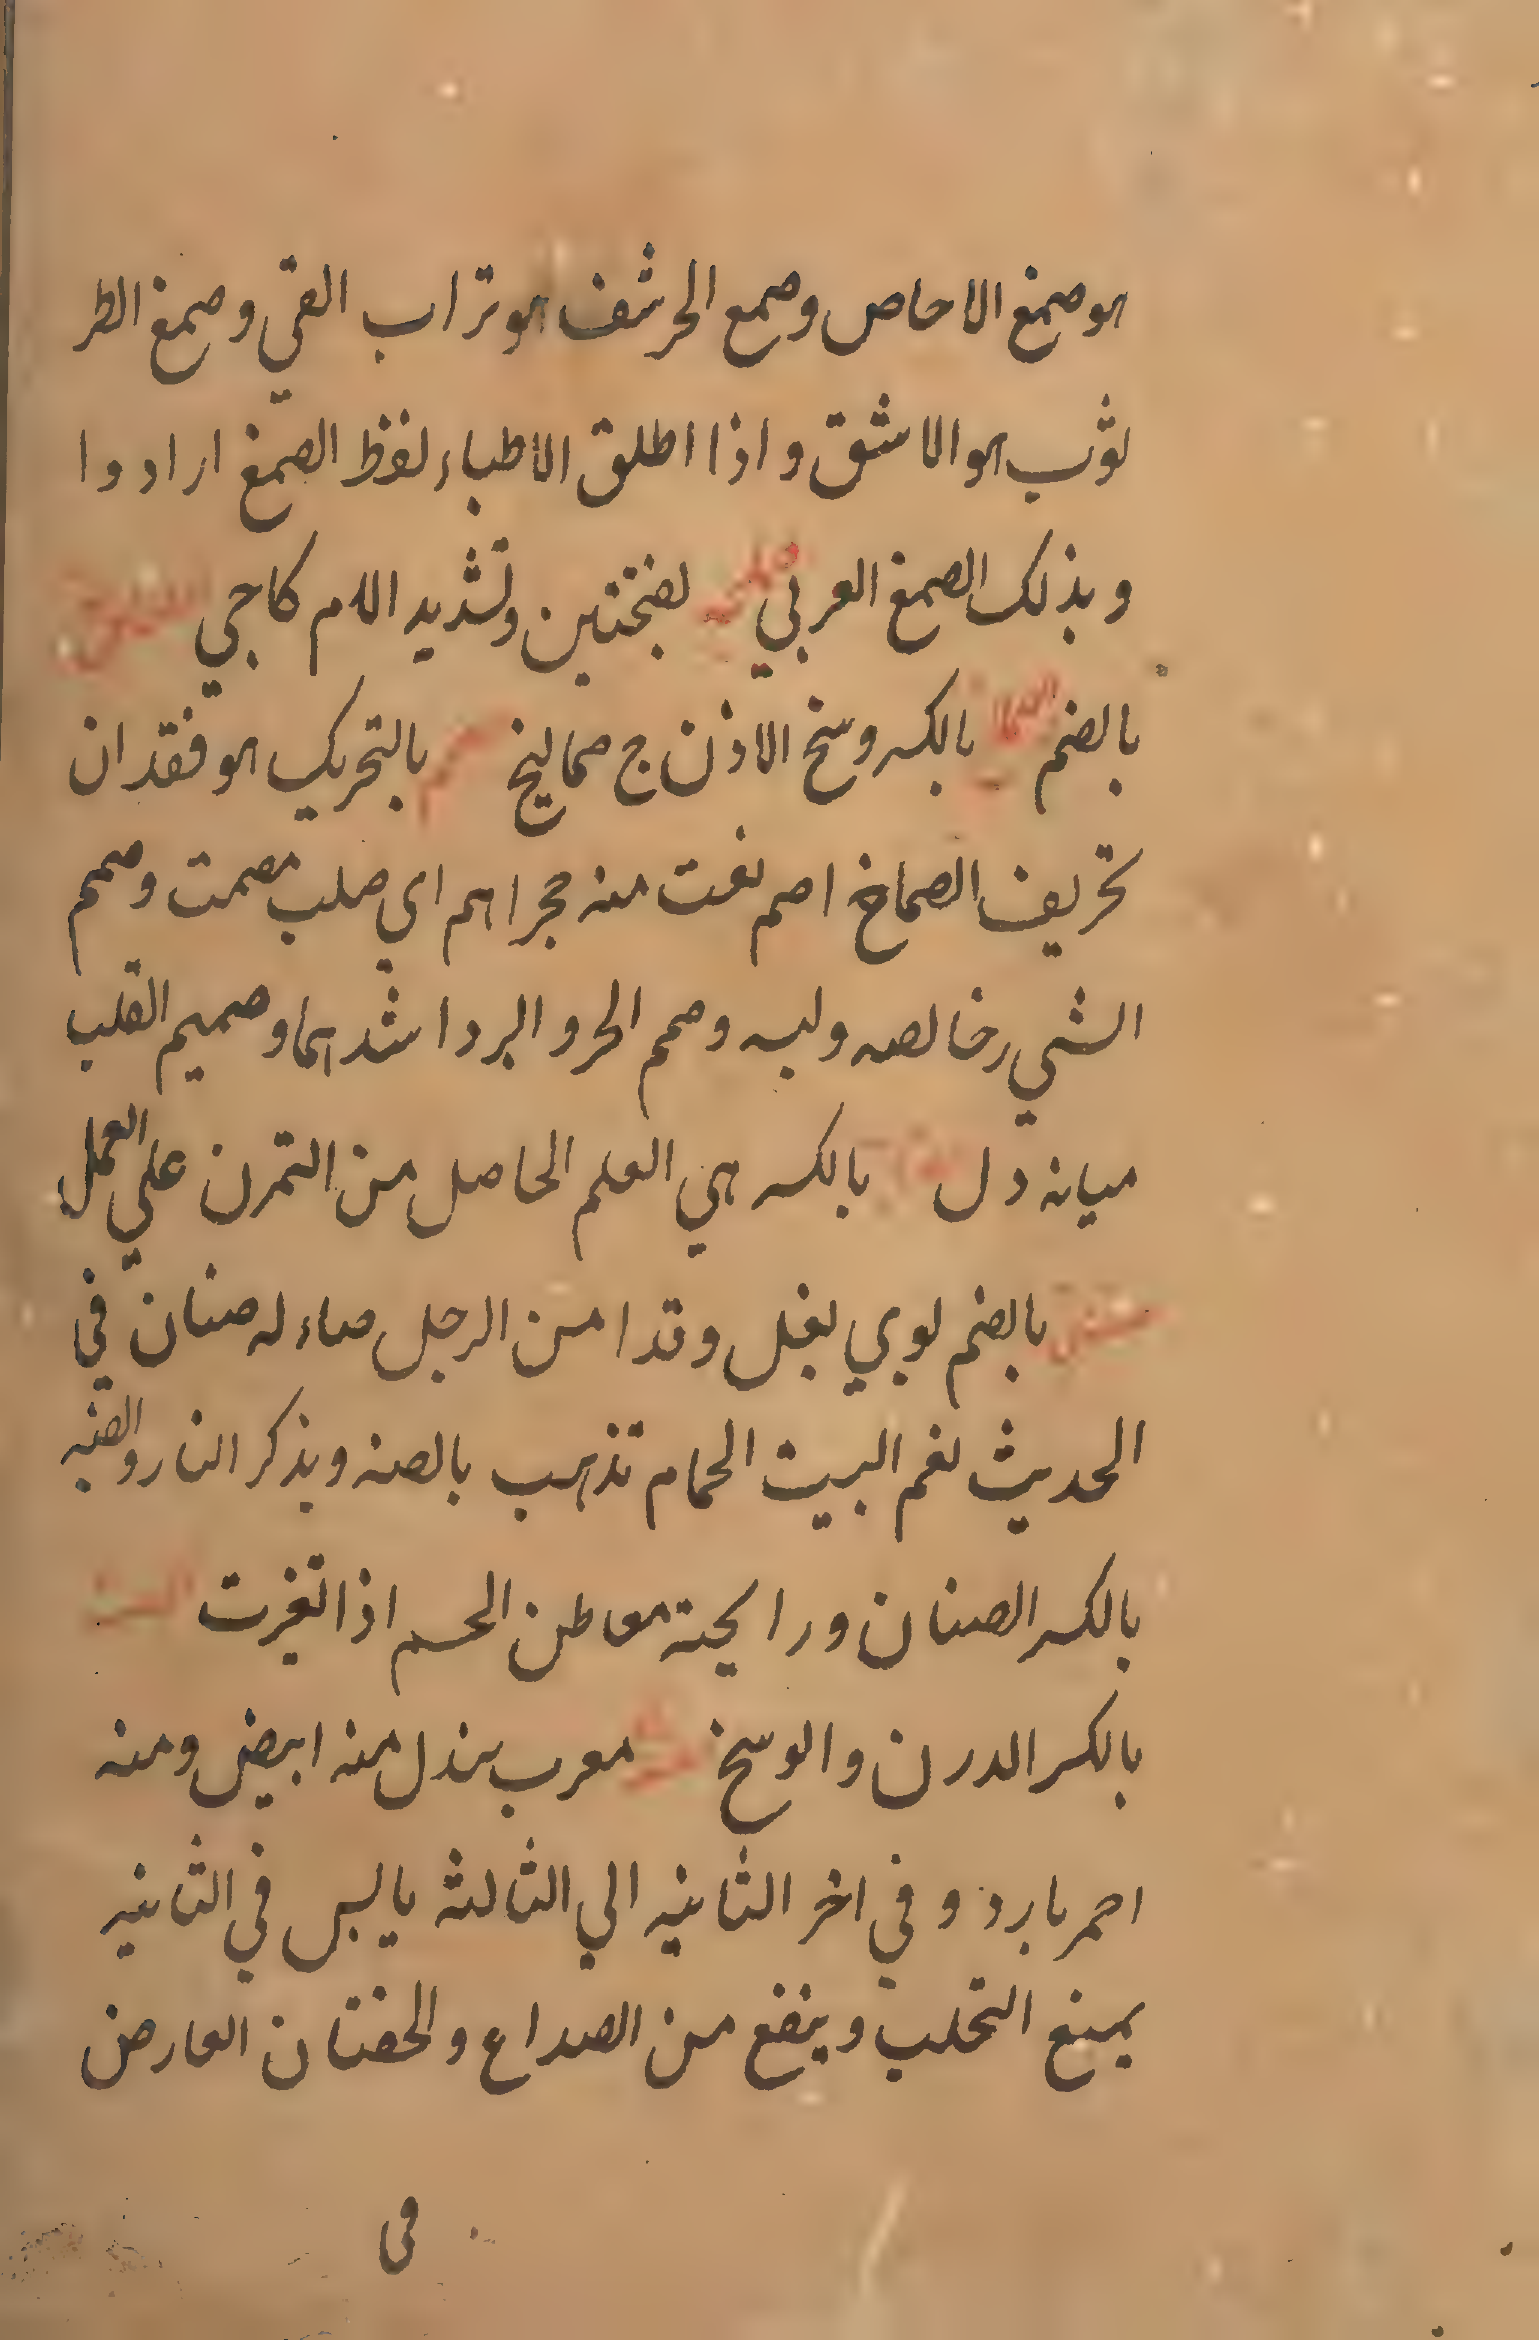 هو صمغ الاحاص وصمع الحرشف هو تراب القي وصمغ الطر
ثوب هو الاشق واذا اطلق الاطباء لفظ الصمغ ارادوا
وبذلك الصمغ العربي بفتحتين وتشديد اللام كاجي
بالضم بالكسر وسخ الاذن ج صماليخ بالتحريك هو فقدان
تخريف الصماخ اصم نعت منه حجر اهم اي صلب مصمت وصمم
الشي خالصه ولبه وصمم الحر والبرد اشدهما وصميم القلب
ميانه دل بالكسر هي العلم الحاصل من التمرن علي العمل
بالضم بوي بغل وقد امن الرجل صاء له صنان في
الحديث نعم البيت الحمام تذهب بالصنه ويذكر النار والصنه
بالكسر الصنان ورايحة معاطن الجسم اذا تغيرت
بالكسر الدرن والوسخ معرب سندل منه ابيض ومنه
احمر بارد و في اخر الثانيه الي الثالثه يابس في الثانيه
يمنع التحلب وينفع من الصداع والخفتان العارض
في